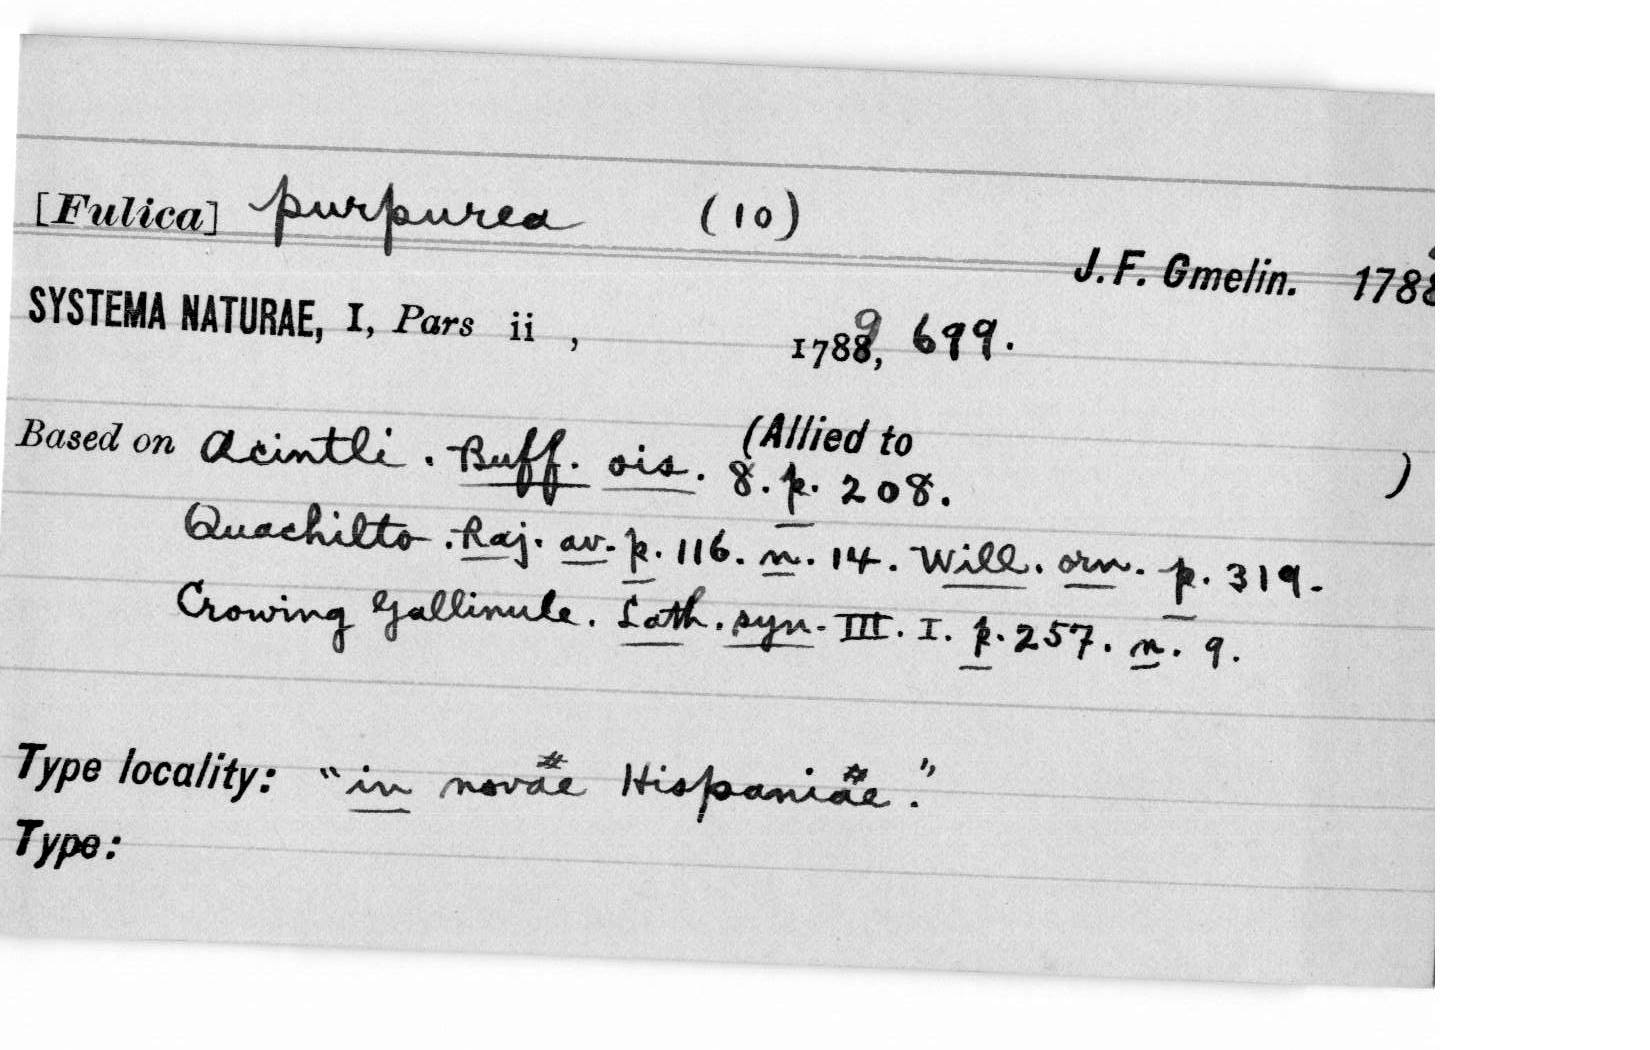 [Fulica] purpurea (10)
J. F. Gmelin. 1788
SYSTEMA NATURAE, I, Pars ii , 1789, 699.
(Allied to )
Based on Acintli . Buff. ois. 8. p. 208.
Quachilto . Raj. av. p. 116. n. 14. Will. orn. p. 319.
Crowing Gallinule. Lath. syn. III. I. p. 257. n. 9.
Type locality: "in novae Hispaniae."
Type: